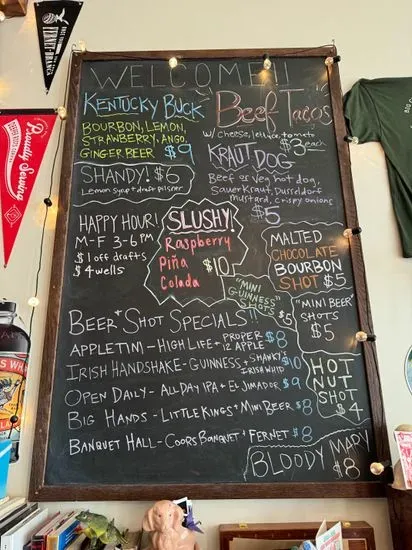 FERNET-BRANCA
Proudly Serving
WELCOME!!
KENTUCKY BUCK
BOURBON, LEMON,
STRAWBERRY, ANGO,
GINGER BEER $9
BEEF TACOS
w/ cheese, lettuce, tomato
$3 each
SHANDY! $6
Lemon syrup + draft pilsner
KRAUT DOG
Beef or Veg hot dog,
SauerKraut, Dusseldorf
mustard, crispy onions
$5
HAPPY HOUR!
M-F 3-6 PM
$1 off drafts
$4 wells
SLUSHY!
Raspberry
Piña
Colada
$10
MALTED
CHOCOLATE
BOURBON
SHOT $5
"MINI
GUINNESS"
SHOTS
$6
"MINI BEER"
SHOTS
$5
BEER + SHOT SPECIALS!!
APPLETINI - HIGH LIFE + PROPER 12 APPLE $8
IRISH HANDSHAKE - GUINNESS + SHANKY'S IRISH WHIP $10
OPEN DAILY - ALL DAY IPA + EL JIMADOR $9
BIG HANDS - LITTLE KINGS + MINI BEER $8
BANQUET HALL - COORS BANQUET + FERNET $8
HOT
NUT
SHOT
$4
BLOODY MARY
$8